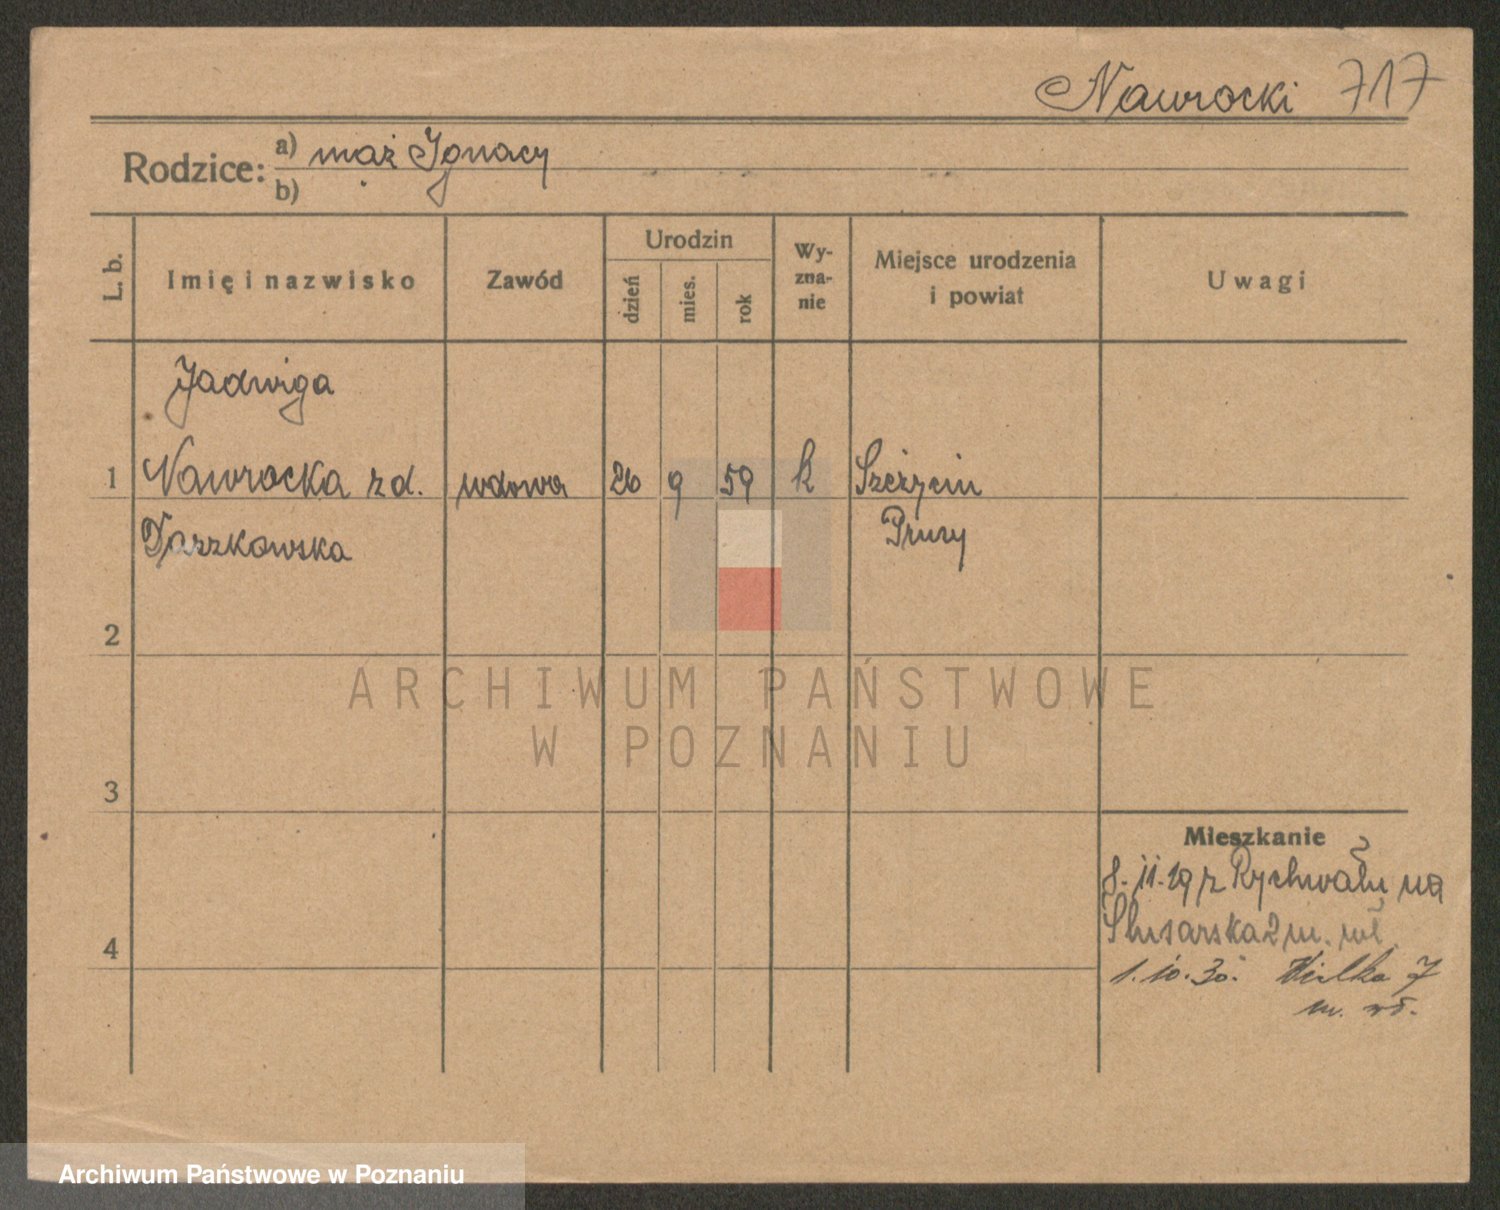 Nawrocki 717
Rodzice: a) mąż Ignacy
b)
L. b.
Imię i nazwisko
Zawód
Urodzin
dzień
mies.
rok
Wy-
zna-
nie
Miejsce urodzenia
i powiat
Uwagi
Jadwiga
1 Nawrocka zd. wdowa 26 9 59 k
Prusy
2
ARCHIWUM PAŃSTWOWE
W POZNANIU
3
Mieszkanie
8.11.29 z Rychwału na
Ślusarska 2 m.
4
1.10.30. Wielka 7
Archiwum Państwowe w Poznaniu